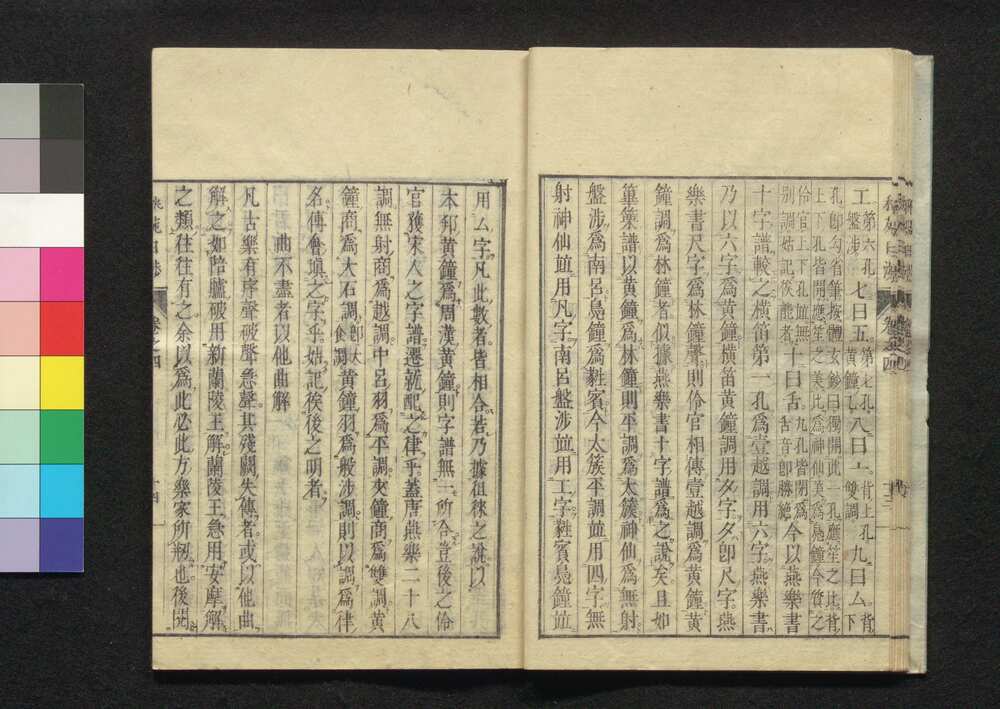 工第六孔七曰五第七孔八曰丄背上孔九曰ム背下
盤涉黃鐘亡雙調
孔卽勾省筆按體玄鈔曰獨開此一孔應笙之比背
上下孔皆開應笙之美比爲神仙美爲鳧鐘今質之
伶官上下孔竝無十曰舌九孔皆閉爲今以燕樂書
別調姑記俟能者舌音卽勝絶
十字譜較之橫笛第一孔爲壹越調用六字燕樂書
乃以六字爲黃鐘橫笛黃鐘調用夕字夕卽尺字燕
樂書尺字爲林鐘聲則伶官相傳壹越調爲黃鐘黃
鐘調爲林鐘者似據燕樂書十字譜爲之說矣且如
篳篥譜以黃鐘爲林鐘則平調爲太簇神仙爲無射
盤涉爲南呂鳧鐘爲蕤賓今太簇平調竝用四字無
射神仙竝用凡字南呂盤涉竝用工字蕤賓鳧鐘竝
用ム字凡此數者皆相合若乃據徂徠之說以
本邦黃鐘爲周漢黃鐘則字譜無一所合豈後之伶
官獲宋人之字譜遷就配之律乎蓋唐燕樂二十八
調無射商爲越調中呂羽爲平調夾鐘商爲雙調黃
鐘商爲大石調卽大食調黃鐘羽爲般涉調則以調爲律
名傅會塡之字乎姑記俟後之明者
曲不盡者以他曲解
凡古樂有序聲破聲急聲其殘闕失傳者或以他曲
解之如陪臚破用新蘭陵王解蘭陵王急用安摩解
之類往往有之余以爲此必此方樂家所剏也後閱
卷之四
十四